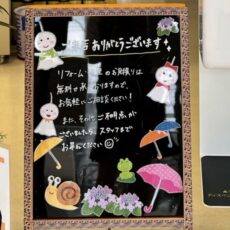 ご来店ありがとうございます
リフォーム の お見積りは
無料で 承りますので、
お気軽にご相談ください!
また、その他ご不明点が
ございましたら、スタッフまで
お尋ねください